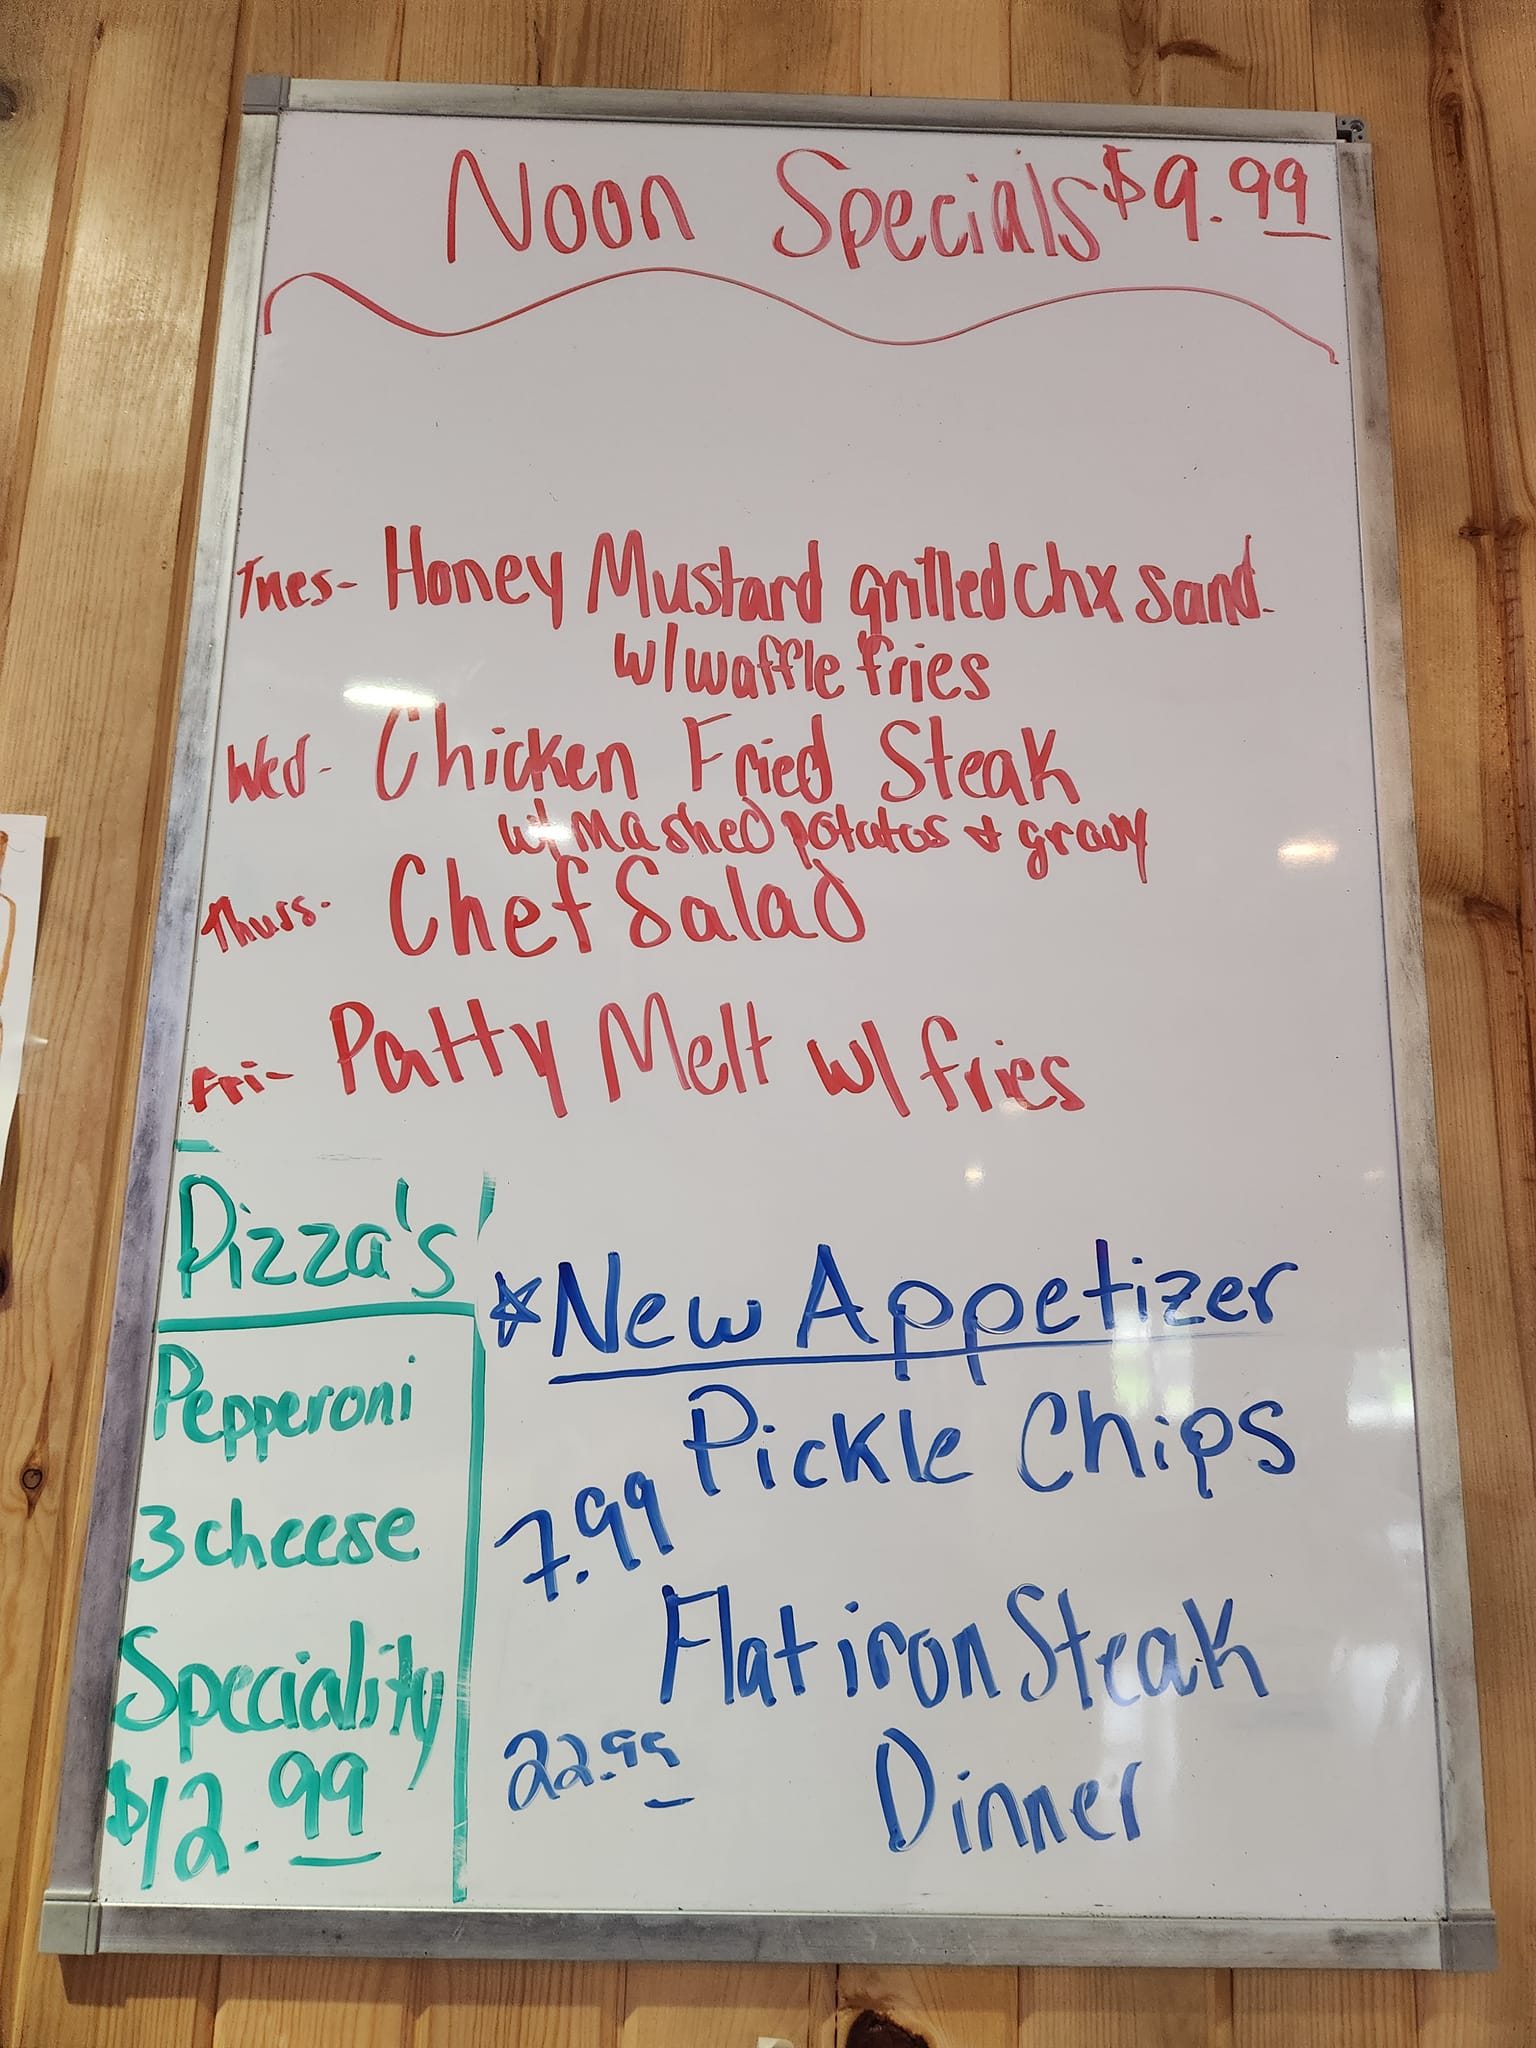 Noon Specials $9.99
Tues- Honey Mustard grilled chx sand.
w/ waffle fries
Wed- Chicken Fried Steak
w/ mashed potatos & gravy
Thurs- Chef Salad
Fri- Patty Melt w/ fries
Pizza's
Pepperoni
3 cheese
Speciality
$12.99
☆ New Appetizer
Pickle Chips
7.99
Flat iron Steak
Dinner
22.99